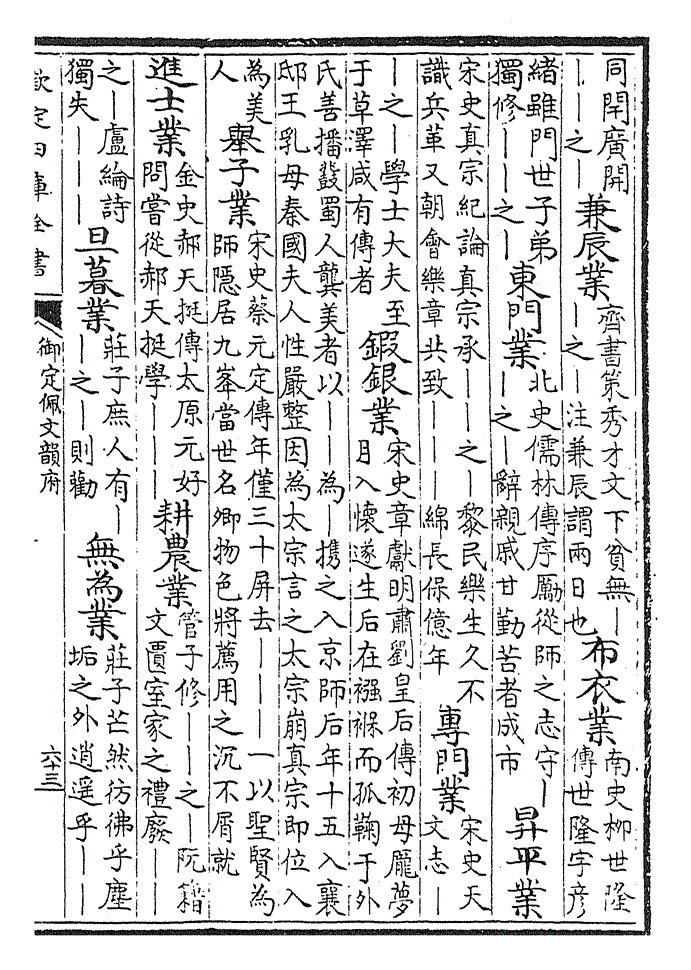 同閈廣開｜｜之｜兼辰業齊書策秀才文下貧無｜｜之｜注兼辰謂兩日也布衣業南史柳世隆傳世隆字彥
緒雖門世子弟獨修｜｜之｜東門業北史儒林傳序勵從師之志守｜｜之｜辭親戚甘勤苦者成市昇平業
宋史真宗紀論真宗承｜｜之｜黎民樂生久不識兵革又朝會樂章共致｜｜｜綿長保億年專門業宋史天文志｜
｜之｜學士大夫至于草澤咸有傳者鍜銀業宋史章獻明肅劉皇后傳初母龎夢月入懷遂生后在襁褓而孤鞠于外
氏善播鼗蜀人龔美者以｜｜為｜携之入京師后年十五入襄邸王乳母秦國夫人性嚴整因為太宗言之太宗崩真宗即位入
為美人舉子業宋史蔡元定傳年僅三十屏去｜｜｜一以聖賢為師隱居九峯當世名卿物色將薦用之沉不屑就
進士業金史郝天挺傳太原元好問嘗從郝天挺學｜｜｜耕農業管子修｜｜之｜阮籍文匱室家之禮廢｜｜
之｜盧綸詩獨失｜｜｜旦暮業莊子庶人有｜｜之｜則勸無為業莊子芒然彷彿乎塵垢之外逍遥乎｜｜
欽定四庫全書　御定佩文韻府　六十三